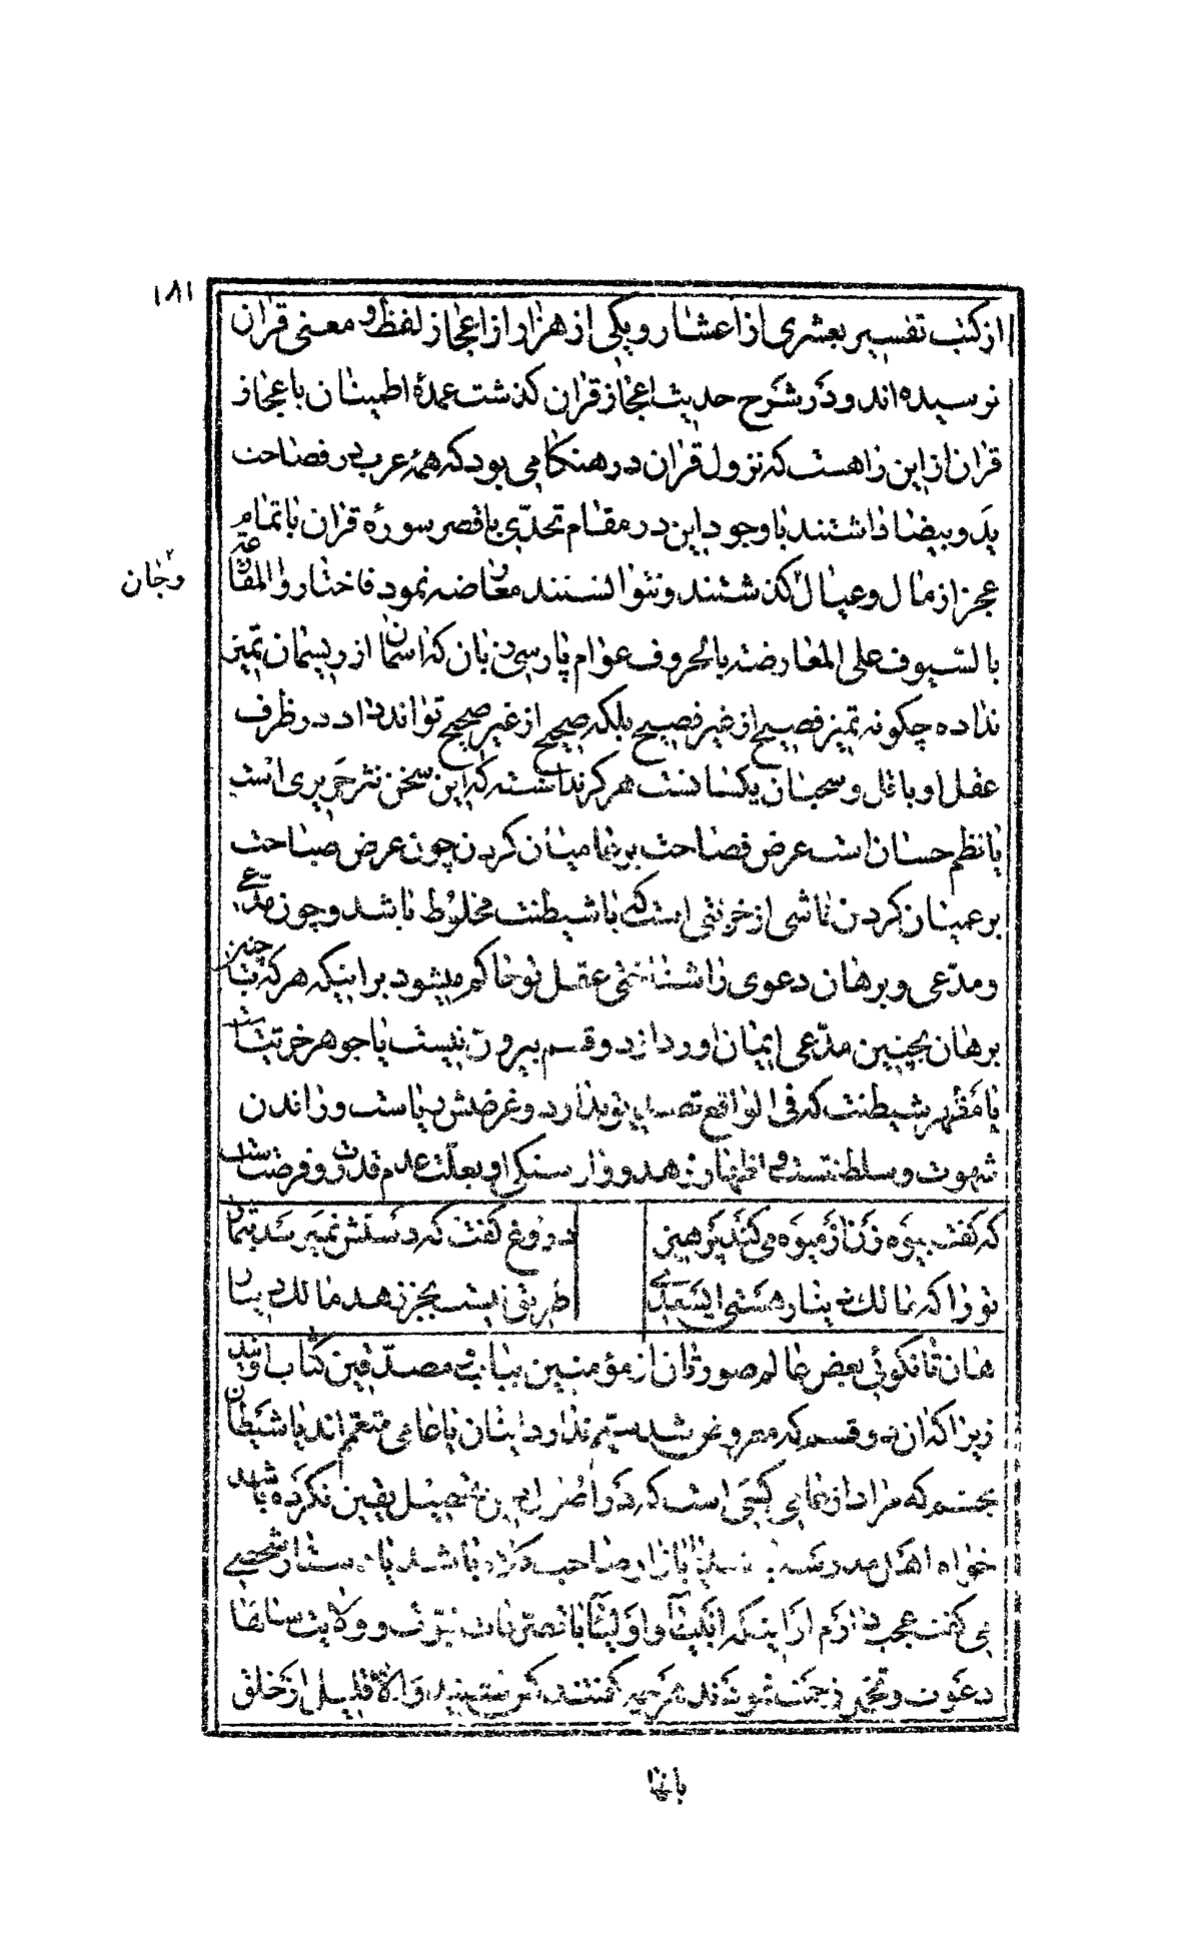 ۱۸۱
از کتب تفسیر بعشری از اعشار و یکی از هزار از اعجاز لفظ و معنی قران
نرسیده‌اند و در شرح حدیث اعجاز قران کذشت عمدهٔ اطمینان باعجاز
قران از این راهست که نزول قران در هنکامی بود که همه عرب در فصاحت
ید و بیضا داشتند با وجود این در مقام تحدّی باقصر سورهٔ قران با تمام
عجز از مال و عیال کذشتند و نتوانستند معارضه نمود فاختاروا المقاتله
و جان
بالسّیوف علی المعارضه بالحروف عوام پارسی زبان که اسمان از ریسمان تمیز
نداده چکونه تمیز فصیح از غیر فصیح بلکه صحیح از غیر صحیح تواند داد در ظرف
عقل او باقل و سحبان یکسانست هرکز ندانسته که این سخن نثر حریری است
یا نظم حسان است عرض فصاحت بر عامیان کردن چون عرض صباحت
بر عمیان کردن ناشی از خریتی است که با شیطنت مخلوط باشد و چون مدّعی
و مدّعی و برهان دعوی را شناختی عقل تو حاکم میشود بر اینکه هرکه با چنین
برهان بچنین مدّعی ایمان اورد از دو قسم بیرون نیست یا جوهر خریتست
یا مظهر شیطنت که فی الواقع تصدیق ندارد و غرضش ریاست و راندن
شهوت و سلطنتست و اظهار زهد و وارستکی او بعلّت عدم قدرت و فرصتست
که کفت بیوه زن از میوه میکند پرهیز
دروغ کفت که دستش نمیرسد بتمار
تو را که مالک دینار هستی ای سعدی
طریق نیست بجز زهد مالک دینار
هان تا نکوئی بعض عالم صورتان از مؤمنین بیان و مصدّقین کتاب اویند
زیرا که ان دو قسم که معروض شد سیّم ندارد ایشان یا عامی متعمّم‌اند یا شیطان
مجسم که مراد از عامی کسی است که در اصول دین تحصیل یقین نکرده باشد
خواه اهل مدرسه باشد یا بازار صاحب کلاه باشد یا دستار شخصی
می کفت عجب دارم از اینکه انبیا و اولیا با تصرّفات نبوّت و ولایت سالها
دعوت و تحمّل زحمت نمودند هرچه کفتند کس نشنید و الا قلیلی از خلق
بانها